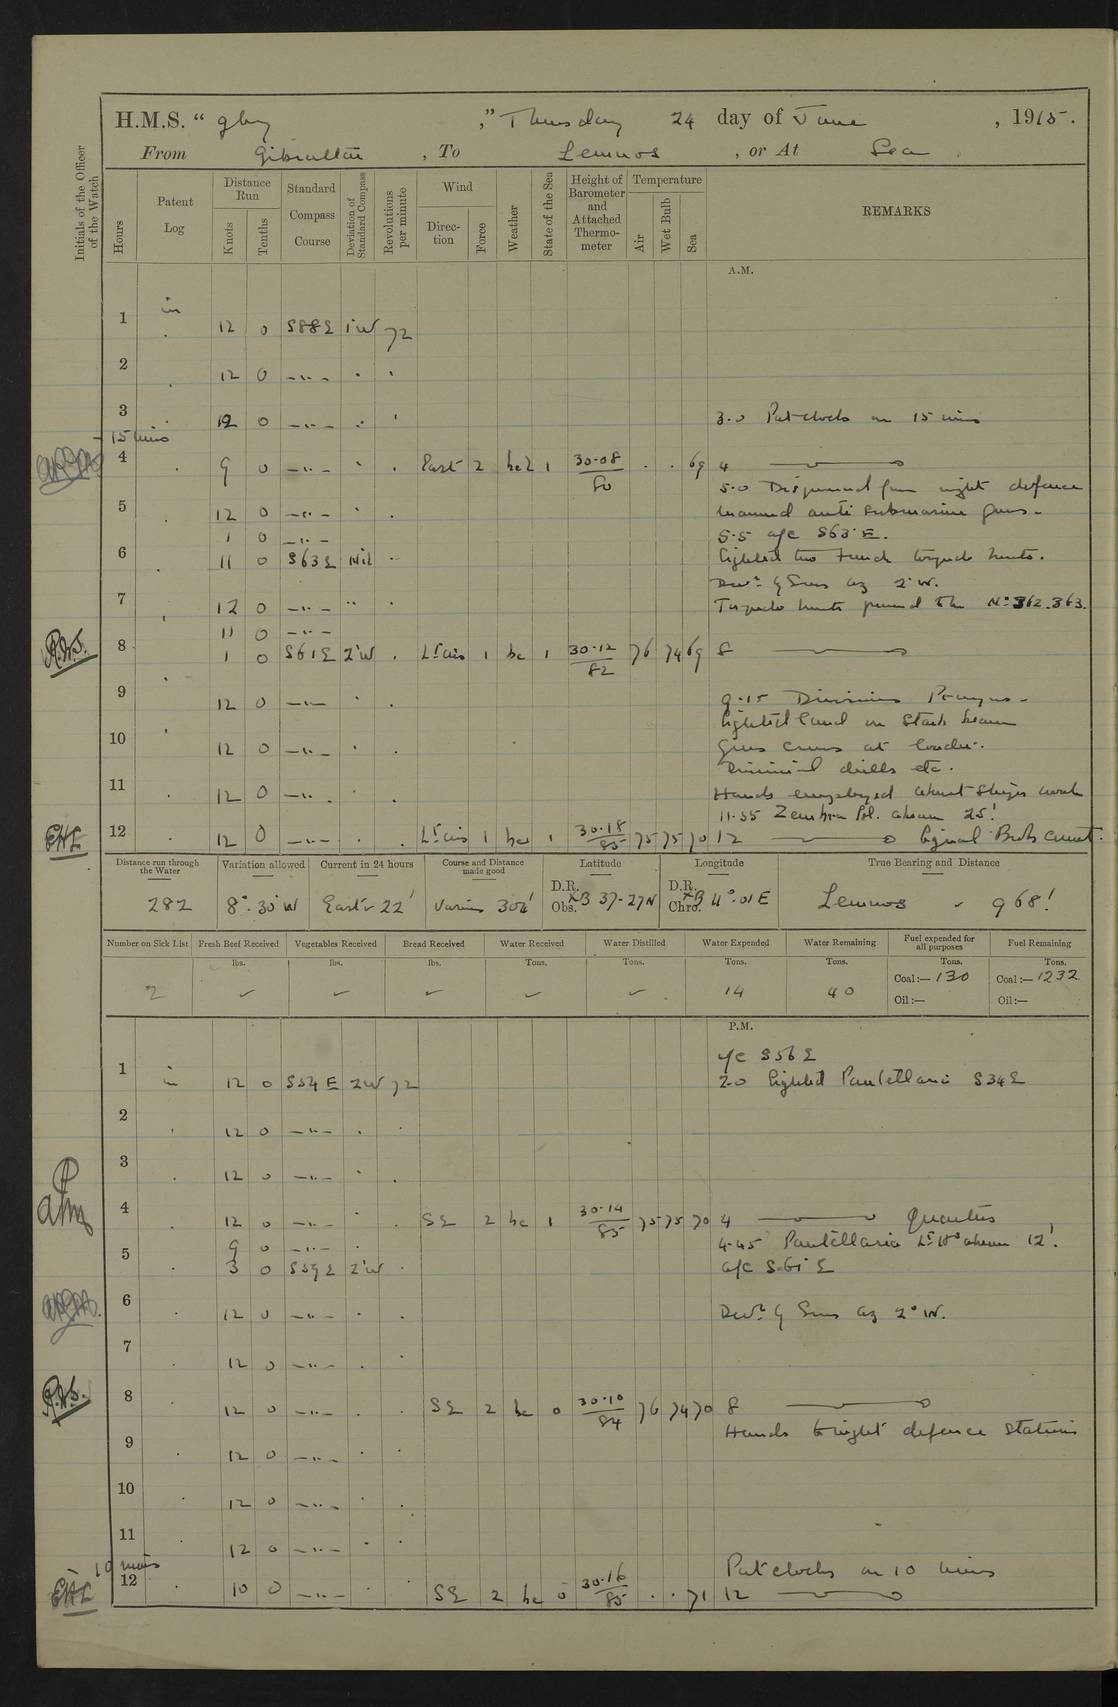 H.M.S. " Glory ," Thursday 24 day of June , 1915.
From Gibraltar , To Lemnos , or At Sea .
Initials of the Officer of the Watch
Hours
Patent Log
Distance Run
Knots
Tenths
Standard Compass Course
Deviation of Standard Compass
Revolutions per minute
Wind
Direction
Force
Weather
State of the Sea
Height of Barometer and Attached Thermometer
Temperature
Air
Wet Bulb
Sea
REMARKS
A.M.
1 in 12 0 S88E 1°W 72
2 12 0 — " —
3 12 0 — " — 3.0 Put clocks on 15 mins
- 15 mins
4 9 0 — " — East 2 1 30.08 80 69 4
5.0 Dispersed from night defence
5 12 0 — " — manned anti submarine guns -
1 0 — " — 5.5 a/c S63°E.
6 11 0 S63E Nil Sighted two French torpedo boats.
Devn. by Suns az 2°W.
7 12 0 — " — Torpedo boats proved to be No. 362. 363.
11 0 — " —
8 1 0 S61E 2°W Lt airs 1 bc 1 30.12 82 76 74 69 8
R.W.S.
9 12 0 — " — 9.15 Divisions Prayers -
Sighted land on Starb beam
10 12 0 — " — Guns crews at loader.
Divisional drills etc.
11 12 0 — " — Hands employed about Ships work
11.55 Zembra Isl. abeam 25'
12 12 0 — " — Lt airs 1 bc 1 30.18 85 75 75 70 12 Signal Books correct.
EHL
Distance run through the Water
Variation allowed
Current in 24 hours
Course and Distance made good
Latitude
Longitude
True Bearing and Distance
282 8°.30'W East'r 22' Various 304' D.R. Obs. 37-27N D.R. Chro. 11°.01E Lemnos 968'
Number on Sick List
Fresh Beef Received
Vegetables Received
Bread Received
Water Received
Water Distilled
Water Expended
Water Remaining
Fuel expended for all purposes
Fuel Remaining
lbs. lbs. lbs. Tons. Tons. Tons. Tons. Tons. Tons.
2 ✓ ✓ ✓ ✓ ✓ 14 40 Coal:— 130 Coal:— 1232
Oil:— Oil:—
P.M.
a/c S56E
1 in 12 0 S54E 2W 72 2.0 Sighted Pantellaria S34E
2 12 0 — " —
3 12 0 — " —
4 12 0 — " — SE 2 bc 1 30.14 85 75 75 70 4 Quarters
9 0 — " — 4.45 Pantellaria Lt Ho abeam 12'.
5 3 0 S59E 2°W a/c S61E
6 12 0 — " — Devn. by Suns az 2°W.
7 12 0 — " —
8 12 0 — " — SE 2 bc 0 30.10 84 76 74 70 8
R.W.S.
Hands to night defence Stations
9 12 0 — " —
10 12 0 — " —
11 12 0 — " —
- 10 mins Put clocks on 10 mins
12 10 0 — " — SE 2 bc 0 30.16 85 71 12
EHL